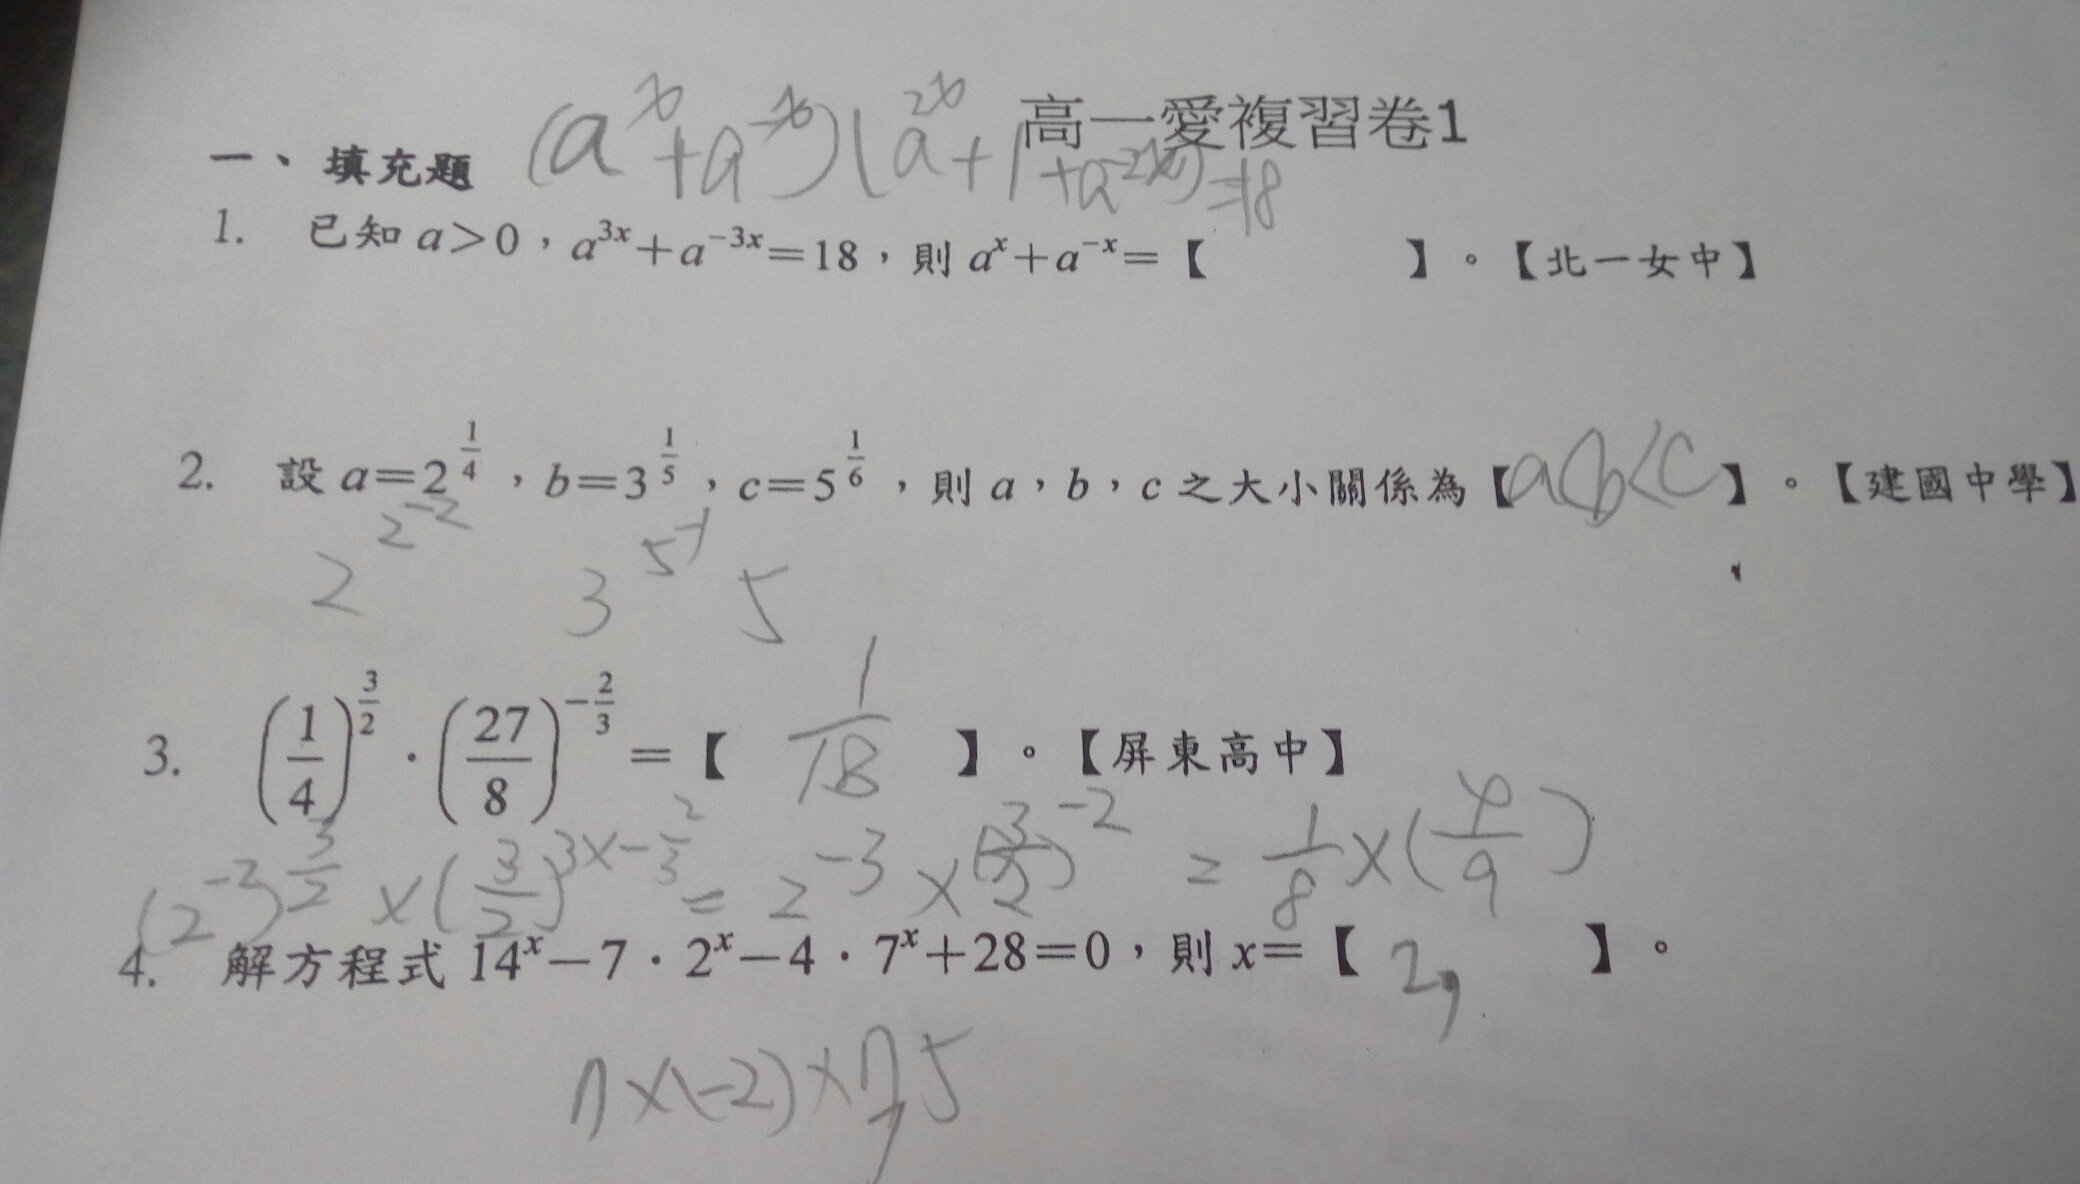 高一愛複習卷1
一、填充題
(a^x+a^-x)(a^2x+1+a^-2x)=18
1. 已知 a>0，a^3x+a^-3x=18，則 a^x+a^-x=【 】。【北一女中】
2. 設 a=2^1/4，b=3^1/5，c=5^1/6，則 a，b，c 之大小關係為【a<b<c】。【建國中學】
2^-2 5^-1
2 3 5
3. (1/4)^3/2．(27/8)^-2/3=【 1/18 】。【屏東高中】
(2^-2)^3/2 ×(3/2)^3×-2/3 = 2^-3 ×(3/2)^-2 = 1/8×(4/9)
4. 解方程式 14^x－7．2^x－4．7^x＋28=0，則 x=【 2, 】。
×(-2)×